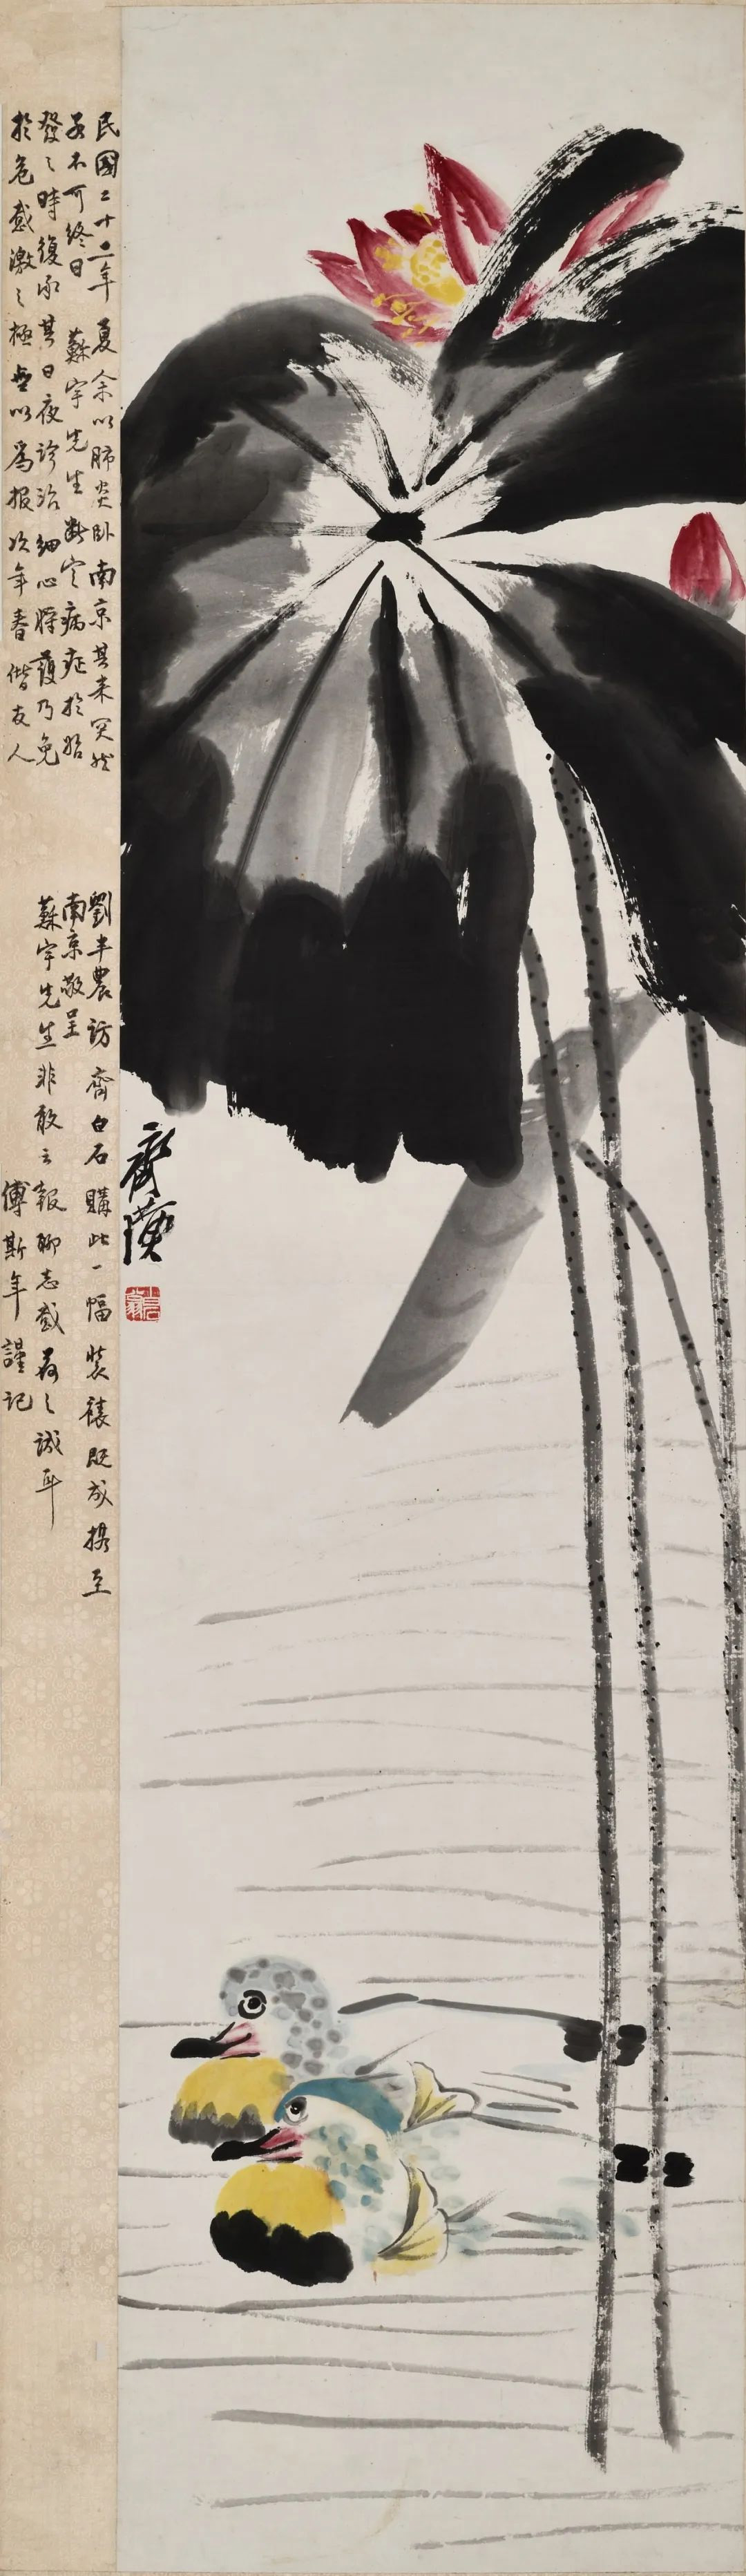 民國二十二年夏余以肺炎臥南京其来突然
若不可終日 蘇宇先生斷定病症於始
發之時復承其日夜診治細心將護乃免
於危感激之極無以爲報次年春偕友人
劉半農訪齊白石購此一幅裝裱既成携至
南京敬呈
蘇宇先生非敢云報聊志感荷之誠耳
傅斯年謹記
齊璜